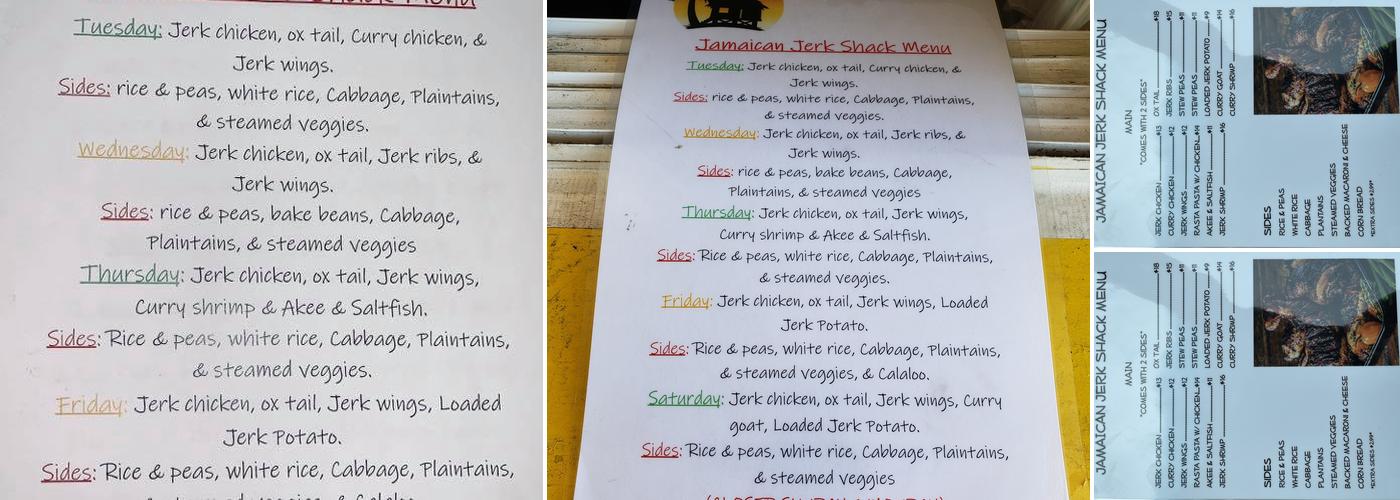 Tuesday: Jerk chicken, ox tail, Curry chicken, &
Jerk wings.
Sides: rice & peas, white rice, Cabbage, Plaintains,
& steamed veggies.
Wednesday: Jerk chicken, ox tail, Jerk ribs, &
Jerk wings.
Sides: rice & peas, bake beans, Cabbage,
Plaintains, & steamed veggies
Thursday: Jerk chicken, ox tail, Jerk wings,
Curry shrimp & Akee & Saltfish.
Sides: Rice & peas, white rice, Cabbage, Plaintains,
& steamed veggies.
Friday: Jerk chicken, ox tail, Jerk wings, Loaded
Jerk Potato.
Sides: Rice & peas, white rice, Cabbage, Plaintains,
Jamaican Jerk Shack Menu
Tuesday: Jerk chicken, ox tail, Curry chicken, &
Jerk wings.
Sides: rice & peas, white rice, Cabbage, Plaintains,
& steamed veggies.
Wednesday: Jerk chicken, ox tail, Jerk ribs, &
Jerk wings.
Sides: rice & peas, bake beans, Cabbage,
Plaintains, & steamed veggies
Thursday: Jerk chicken, ox tail, Jerk wings,
Curry shrimp & Akee & Saltfish.
Sides: Rice & peas, white rice, Cabbage, Plaintains,
& steamed veggies.
Friday: Jerk chicken, ox tail, Jerk wings, Loaded
Jerk Potato.
Sides: Rice & peas, white rice, Cabbage, Plaintains,
& steamed veggies, & Calaloo.
Saturday: Jerk chicken, ox tail, Jerk wings, Curry
goat, Loaded Jerk Potato.
Sides: Rice & peas, white rice, Cabbage, Plaintains,
& steamed veggies
JAMAICAN JERK SHACK MENU
MAIN
"COMES WITH 2 SIDES"
JERK CHICKEN $13
CURRY CHICKEN $12
JERK WINGS $12
RASTA PASTA W/ CHICKEN $14
AKEE & SALTFISH $11
JERK SHRIMP $16
OX TAIL $18
JERK RIBS $15
STEW PEAS $11
STEW PEAS $11
LOADED JERK POTATO $9
CURRY GOAT $14
CURRY SHRIMP $16
SIDES
RICE & PEAS
WHITE RICE
CABBAGE
PLANTAINS
STEAMED VEGGIES
BACKED MACARONI & CHEESE
CORN BREAD
*EXTRA SIDES $2.99*
JAMAICAN JERK SHACK MENU
MAIN
"COMES WITH 2 SIDES"
JERK CHICKEN $13
CURRY CHICKEN $12
JERK WINGS $12
RASTA PASTA W/ CHICKEN $14
AKEE & SALTFISH $11
JERK SHRIMP $16
OX TAIL $18
JERK RIBS $15
STEW PEAS $11
STEW PEAS $11
LOADED JERK POTATO $9
CURRY GOAT $14
CURRY SHRIMP $16
SIDES
RICE & PEAS
WHITE RICE
CABBAGE
PLANTAINS
STEAMED VEGGIES
BACKED MACARONI & CHEESE
CORN BREAD
*EXTRA SIDES $2.99*